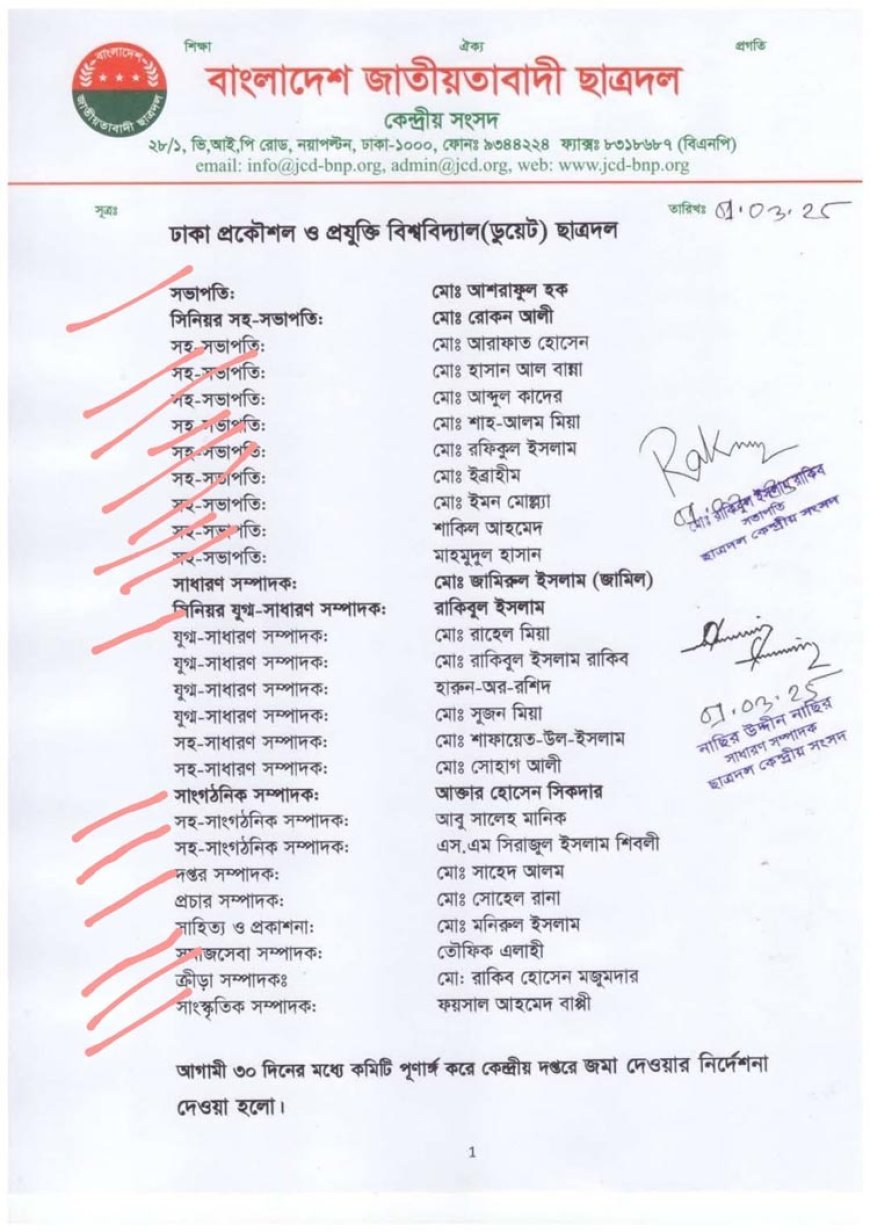 শিক্ষা ঐক্য প্রগতি
বাংলাদেশ জাতীয়তাবাদী ছাত্রদল
কেন্দ্রীয় সংসদ
২৮/১, ভি,আই,পি রোড, নয়াপল্টন, ঢাকা-১০০০, ফোনঃ ৯৩৪৪২২৪ ফ্যাক্সঃ ৮৩১৮৬৮৭ (বিএনপি)
email: info@jcd-bnp.org, admin@jcd.org, web: www.jcd-bnp.org
বাংলাদেশ
জাতীয়তাবাদী ছাত্রদল
সূত্রঃ তারিখঃ 01.03.25
ঢাকা প্রকৌশল ও প্রযুক্তি বিশ্ববিদ্যাল(ডুয়েট) ছাত্রদল
সভাপতি: মোঃ আশরাফুল হক
সিনিয়র সহ-সভাপতি: মোঃ রোকন আলী
সহ-সভাপতি: মোঃ আরাফাত হোসেন
সহ-সভাপতি: মোঃ হাসান আল বান্না
সহ-সভাপতি: মোঃ আব্দুল কাদের
সহ-সভাপতি: মোঃ শাহ-আলম মিয়া
সহ-সভাপতি: মোঃ রফিকুল ইসলাম
সহ-সভাপতি: মোঃ ইব্রাহীম
সহ-সভাপতি: মোঃ ইমন মোল্ল্যা
সহ-সভাপতি: শাকিল আহমেদ
সহ-সভাপতি: মাহমুদুল হাসান
সাধারণ সম্পাদক: মোঃ জামিরুল ইসলাম (জামিল)
সিনিয়র যুগ্ম-সাধারণ সম্পাদক: রাকিবুল ইসলাম
যুগ্ম-সাধারণ সম্পাদক: মোঃ রাহেল মিয়া
যুগ্ম-সাধারণ সম্পাদক: মোঃ রাকিবুল ইসলাম রাকিব
যুগ্ম-সাধারণ সম্পাদক: হারুন-অর-রশিদ
যুগ্ম-সাধারণ সম্পাদক: মোঃ সুজন মিয়া
সহ-সাধারণ সম্পাদক: মোঃ শাফায়েত-উল-ইসলাম
সহ-সাধারণ সম্পাদক: মোঃ সোহাগ আলী
সাংগঠনিক সম্পাদক: আক্তার হোসেন সিকদার
সহ-সাংগঠনিক সম্পাদক: আবু সালেহ মানিক
সহ-সাংগঠনিক সম্পাদক: এস.এম সিরাজুল ইসলাম শিবলী
দপ্তর সম্পাদক: মোঃ সাহেদ আলম
প্রচার সম্পাদক: মোঃ সোহেল রানা
সাহিত্য ও প্রকাশনা: মোঃ মনিরুল ইসলাম
সমাজসেবা সম্পাদক: তৌফিক এলাহী
ক্রীড়া সম্পাদকঃ মো: রাকিব হোসেন মজুমদার
সাংস্কৃতিক সম্পাদক: ফয়সাল আহমেদ বাপ্পী
মোঃ রাকিবুল ইসলাম রাকিব
সভাপতি
ছাত্রদল কেন্দ্রীয় সংসদ
01.03.25
নাছির উদ্দীন নাছির
সাধারণ সম্পাদক
ছাত্রদল কেন্দ্রীয় সংসদ
আগামী ৩০ দিনের মধ্যে কমিটি পূণার্ঙ্গ করে কেন্দ্রীয় দপ্তরে জমা দেওয়ার নির্দেশনা
দেওয়া হলো।
1